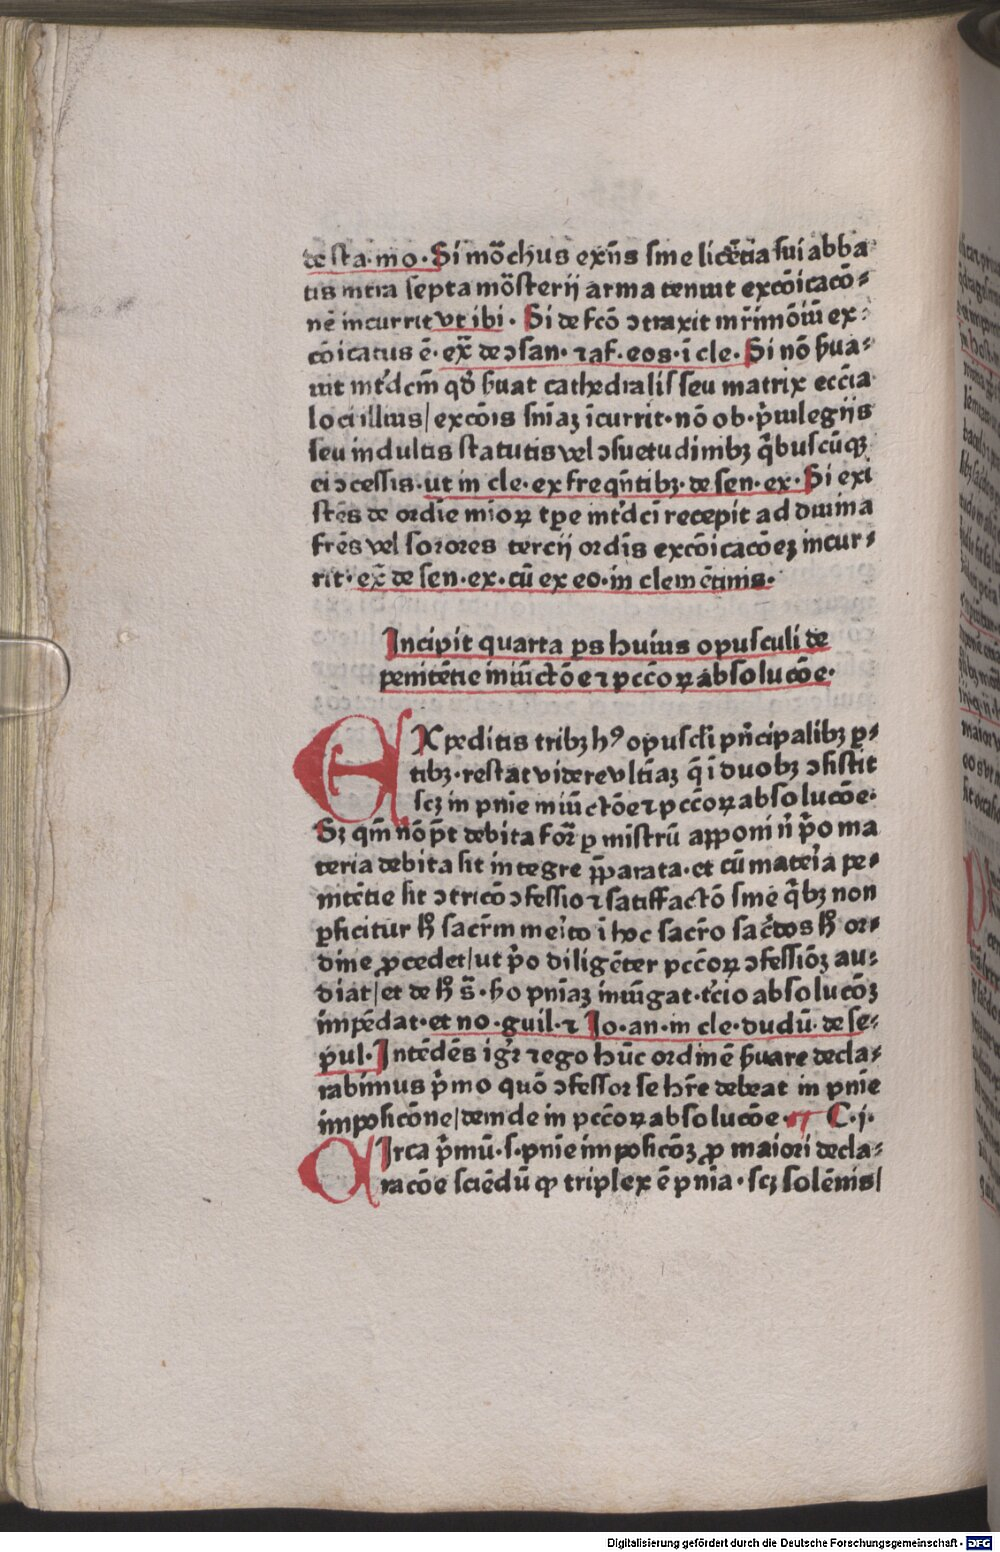 de sta·mo·Si mōchus exñs sine licēcia sui abba
tis intra septa mōsterij arma tenuit excōicacō⸗
nē incurrit vt ibi·Si de fcō ↄtraxit mr̄imōiū ex⸗
cōicatus ē·ex̄ de ↄsan·⁊ af·eos·ī cle·Si nō ẜua⸗
uit int'dcm̄ qd̓ ẜuat cathedralis seu matrix ecc̄ia
loci illius/excōis sn̄iaꝫ īcurrit·nō ob·p̄uilegijs
seu indultis statutis vel ↄsuetudinibꝫ q̄buscūqꝫ
ei ↄcessis·ut in cle·ex freqn̄tibꝫ·de sen·ex·Si exi
stēs de ordīe mioꝝ tp̄e int'dci recepit ad diuina
fr̄es vel sorores tercij ordīs excōicacōeꝫ incur⸗
rit·ex̄ de sen·ex·cū ex eo·in clemētinis·
Incipit quarta ps huius opusculi de
penitētie iniūctōe ⁊ pcc̄oꝝ absolucōe·
EXpeditis tribꝫ hꝰ opuscli pn̄cipalibꝫ ꝑ⸗
tibꝫ·restat videre vltīaꝫ q̄ ī duobꝫ ↄsistit
scꝫ in pnīe iniūctōe ⁊ pcc̄oꝝ absolucōe·
Sꝫ qm̄ nō pt̄ debita for̄ ꝑ mistrū apponi n̄ p̄o ma
teria debita sit integre p̄parata·et cū mate'ia pe⸗
nitētie sit ↄtricō ↄfessio ⁊ satisfactō sine q̄bꝫ non
ꝑficitur h̄ sacr̄m me'ito ī hoc sacr̄o sac̄dos h̄ or⸗
dine ꝓcedet/ut p̄o diligēter pcc̄oꝝ ↄfessiōꝫ au⸗
diat/et de h̄ s̄·ho pn̄iaꝫ iniūgat·t'cio absolucōꝫ
impēdat·et no·guil·⁊ Io·an·in cle·dudū·de se⸗
pul·Intēdēs igr̄ ⁊ ego hūc ordinē ẜuare decla⸗
rabimus p̄mo quō ↄfessor se hr̄e debeat in pnīe
imposicōne/deinde in pcc̄oꝝ absolucōe·¶ C·j·
CIrca p̄mū·s·pnīe imposicōꝫ ꝓ maiori decla⸗
racōe sciēdū ꝙ triplex ē pn̄ia·scꝫ solēnis/
Digitalisierung gefördert durch die Deutsche Forschungsgemeinschaft - DFG